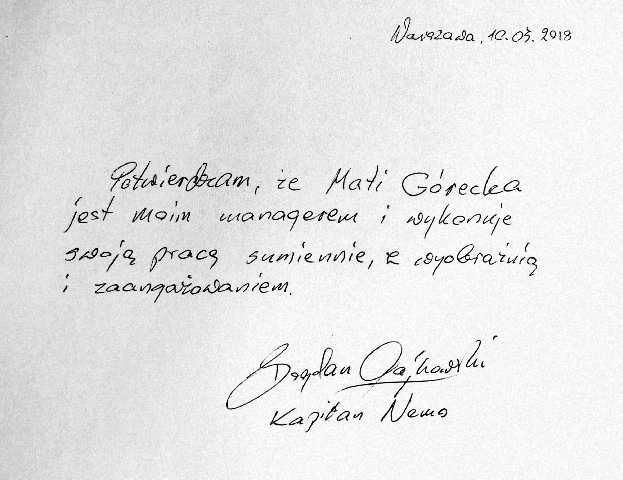 Warszawa, 10.05.2018
Potwierdzam, że Mati Górecka
jest moim managerem i wykonuje
swoją pracę sumiennie, z wyobraźnią
i zaangażowaniem.
Bogdan Gajkowski
Kapitan Nemo